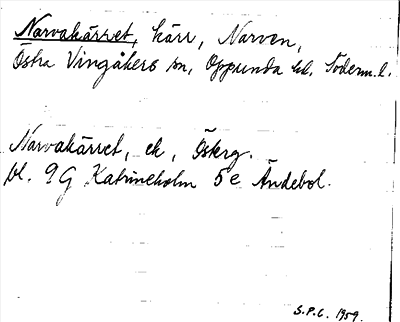 Narvakärret, kärr, Narven,
Östra Vingåkers sn, Oppunda hd, Söderm.l.
Narvakärret, ek, Österg.
bl. 9G Katrineholm 5e Ändebol.
S.P.C. 1959.